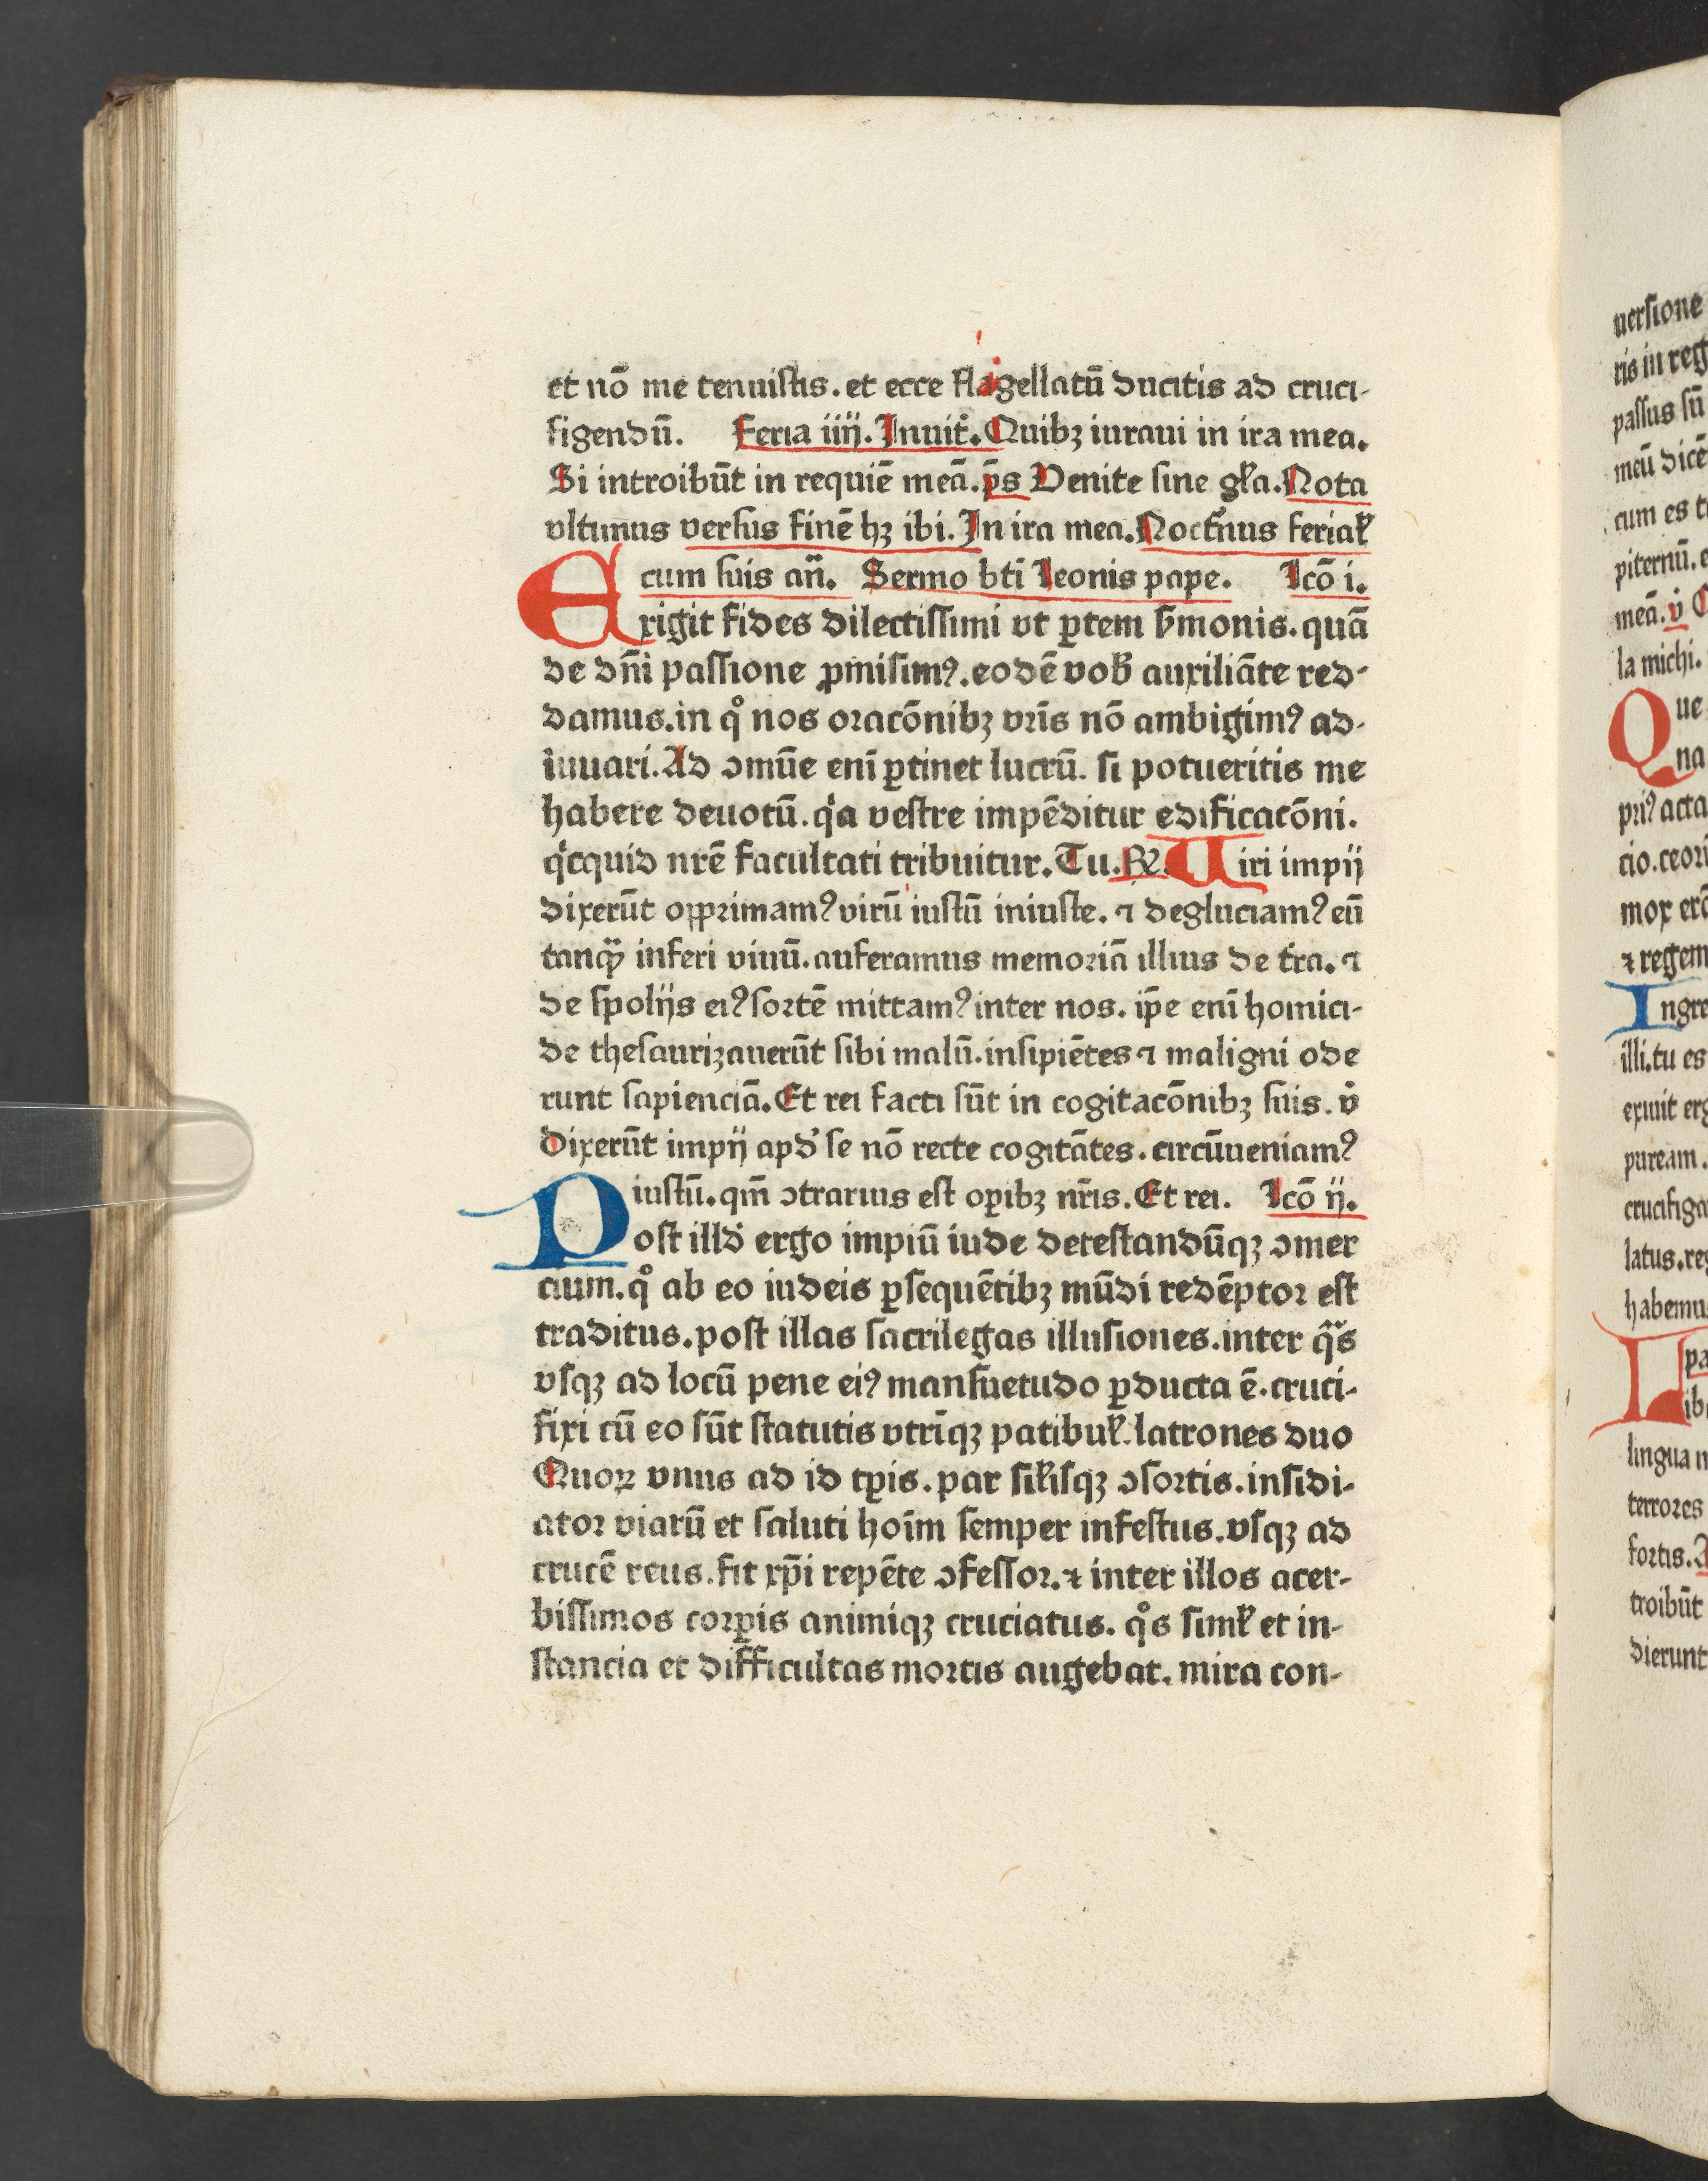 et nō me tenuistis. et ecce flagellatū ducitis ad cruci-
figendū. Feria iiij. Inuit̉. Quibꝫ iuraui in ira mea.
Si introibūt in requiē meā. p̄s Venite sine gl̓a. Nota
vltimus versus finē hꝫ ibi. In ira mea. Noct̓nus ferial̓
cum suis an̄. Sermo bt̄i leonis pape. Lcō i.
Exigit fides dilectissimi vt ꝑtem ẜmonis. quā
de dn̄i passione ꝓmisimꝰ. eodē vob̓ auxiliāte red-
damus. in qͦ nos oracōnibꝫ vr̄is nō ambigimꝰ ad-
iuuari. Ad ↄmūe enī ꝑtinet lucrū. si potueritis me
habere deuotū. qͥa vestre impēditur edificacōni.
qͥcquid nr̄e facultati tribuitur. Tu. R̷. Uiri impij
dixerūt opp̱rimamꝰ virū iustū iniuste. ⁊ degluciamꝰ eū
tanqᷓ inferi viuū. auferamus memoriā illius de t̓ra. ⁊
de spolijs eiꝰ sortē mittamꝰ inter nos. ip̄e enī homici-
de thesaurizauerūt sibi malū. insipiētes ⁊ maligni ode
runt sapienciā. Et rei facti sūt in cogitacōnibꝫ suis. v̓
Dixerūt impij apd̓ se nō recte cogitātes. circūueniamꝰ
iustū. qm̄ ↄtrarius est oꝑibꝫ nr̄is. Et rei. Lcō ij.
Post illd̓ ergo impiū iude detestandūqꝫ ↄmer
cium. qͦ ab eo iudeis ꝑsequētibꝫ mūdi redēptor est
traditus. post illas sacrilegas illusiones. inter qᷓs
vsqꝫ ad locū pene eiꝰ mansuetudo ꝑducta ē. cruci-
fixi cū eo sūt statutis vtrīqꝫ patibul̓. latrones duo
Quoꝝ vnus ad id tꝑis. par sil̓isqꝫ ↄsortis. insidi-
ator viarū et saluti hoīm semper infestus. vsqꝫ ad
crucē reus. fit xp̄i repēte ↄfessor. ⁊ inter illos acer-
bissimos corꝑis animiqꝫ cruciatus. qͦs simul̓ et in-
stancia et difficultas mortis augebat. mira con-
uersione
ris in reg
passus sū
meū dicē
cum es t
piternū. e
meā. v̓
la michi.
Que
na
priꝰ acta
cio. ceori
mox erō
⁊ regem
Ingre
illi. tu es
exiuit erg
puream.
crucifiga
latus. reg
habemus
pa
Lib
lingua
terrores
fortis.
troibūt
dierunt